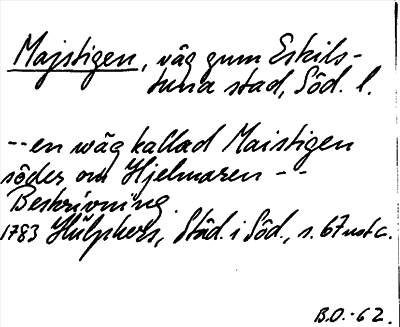 Majstigen, väg gm Eskils-
tuna stad, Söd. l.
--en wäg kallad Maistigen
söder om Hjelmaren --
Beskrivning
1783 Hülphers, Städ. i Söd., s. 67 not c.
B.O.-62.